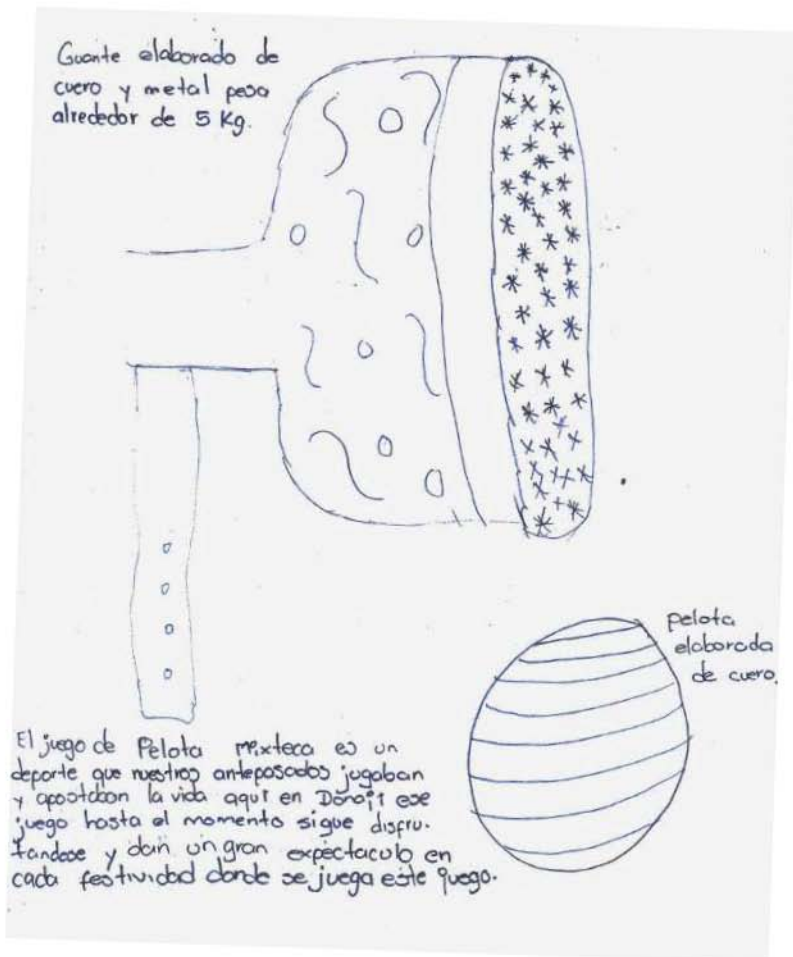 Guante elaborado de
cuero y metal pesa
alrededor de 5 Kg.
pelota
elaborada
de cuero.
El juego de Pelota mixteca es un
deporte que nuestros antepasados jugaban
y apostabon la vida aquí en Donají ese
juego hasta el momento sigue disfru-
tandose y dan un gran expectaculo en
cada festividad donde se juega este juego.